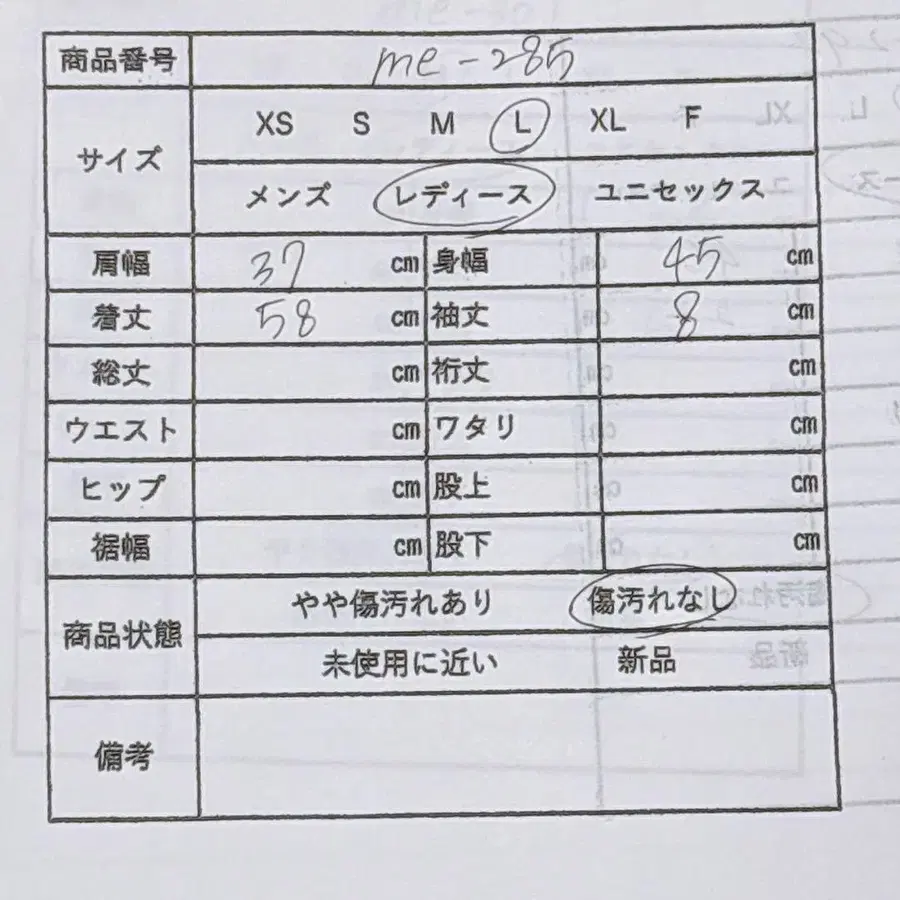 商品番号 me-285
サイズ XS S M L XL F
メンズ レディース ユニセックス
肩幅 37 cm 身幅 45 cm
着丈 58 cm 袖丈 8 cm
総丈 cm 裄丈 cm
ウエスト cm ワタリ cm
ヒップ cm 股上 cm
裾幅 cm 股下 cm
商品状態 やや傷汚れあり 傷汚れなし
未使用に近い 新品
備考